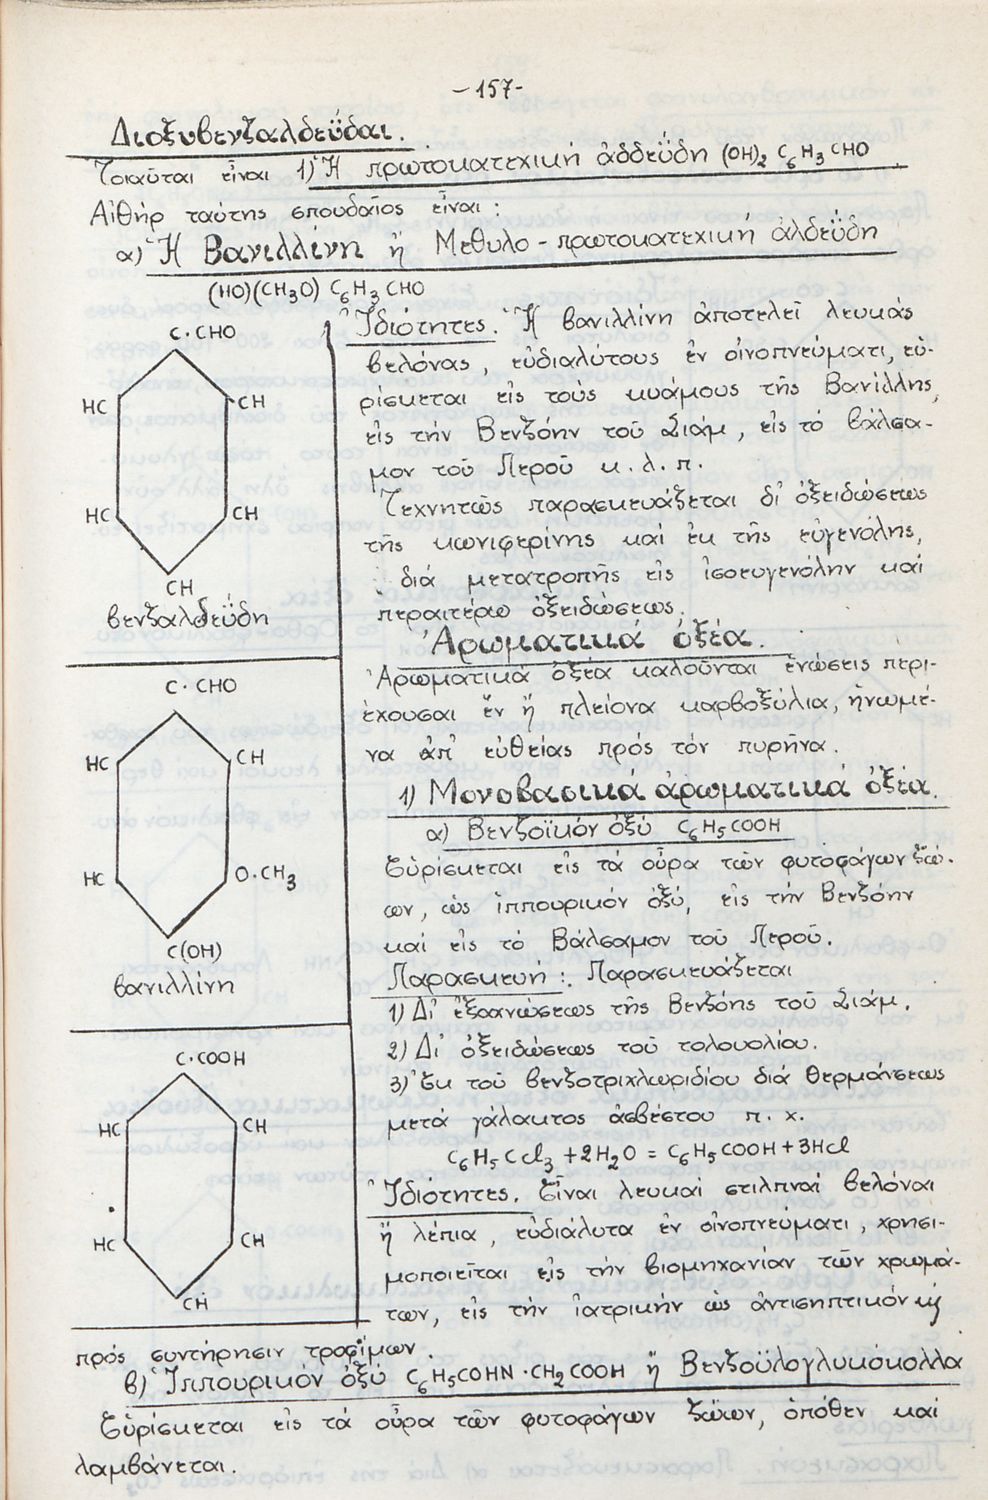 -157-
Διοξυβενζαλδεΰδαι.
Τοιαῦται εἶναι 1) Ἡ πρωτοκατεχική ἀδδεΰδη (OH)2 C6H3CHO
Αἰθήρ ταύτης σπουδαῖος εἶναι:
α) Ἡ Βανιλλίνη ἤ Μεθυλο-πρωτοκατεχική ἀλδεΰδη
(HO)(CH3O) C6H3CHO
C·CHO
HC
CH
HC
CH
CH
βενζαλδεΰδη
C·CHO
HC
CH
HC
O·CH3
C(OH)
βανιλλίνη
C·COOH
HC
CH
HC
CH
CH
Ἰδιότητες. Ἡ βανιλλίνη ἀποτελεῖ λευκάς
βελόνας, εὐδιαλύτους ἐν οἰνοπνεύματι, εὑ-
ρίσκεται εἰς τούς κυάμους τῆς Βανίλλης,
εἰς τήν Βενζόην τοῦ Σιάμ, εἰς τό βάλσα-
μον τοῦ Περοῦ κ.λ.π.
Τεχνητῶς παρασκευάζεται δι' ὀξειδώσεως
τῆς κωνιφερίνης καί ἐκ τῆς εὐγενόλης,
διά μετατροπῆς εἰς ἰσοευγενόλην καί
περαιτέρω ὀξειδώσεως.
Ἀρωματικά ὀξέα.
Ἀρωματικά ὀξέα καλοῦνται ἑνώσεις περι-
έχουσαι ἕν ἤ πλείονα καρβοξύλια, ἡνωμέ-
να ἀπ' εὐθείας πρός τόν πυρῆνα.
1) Μονοβασικά ἀρωματικά ὀξέα.
α) Βενζοϊκόν ὀξύ C6H5COOH
Εὑρίσκεται εἰς τά οὖρα τῶν φυτοφάγων ζώ-
ων, ὡς ἱππουρικόν ὀξύ, εἰς τήν Βενζόην
καί εἰς τό Βάλσαμον τοῦ Περοῦ.
Παρασκευή: Παρασκευάζεται
1) Δι' ἐξαανώσεως τῆς Βενζόης τοῦ Σιάμ.
2) Δι' ὀξειδώσεως τοῦ τολουολίου.
3) Ἐκ τοῦ βενζοτριχλωριδίου διά θερμάνσεως
μετά γάλακτος ἀσβέστου π.χ.
C6H5CCl3 + 2H2O = C6H5COOH + 3HCl
Ἰδιότητες. Εἶναι λευκαί στιλπναί βελόναι
ἤ λέπια, εὐδιάλυτα ἐν οἰνοπνεύματι, χρησι-
μοποιεῖται εἰς τήν βιομηχανίαν τῶν χρωμά-
των, εἰς τήν ἰατρικήν ὡς ἀντισηπτικόν ϗ
πρός συντήρησιν τροφίμων.
β) Ἱππουρικόν ὀξύ C6H5COHN·CH2COOH ἤ Βενζοϋλογλυκόκολλα
Εὑρίσκεται εἰς τά οὖρα τῶν φυτοφάγων ζώων, ὁπόθεν καί
λαμβάνεται.